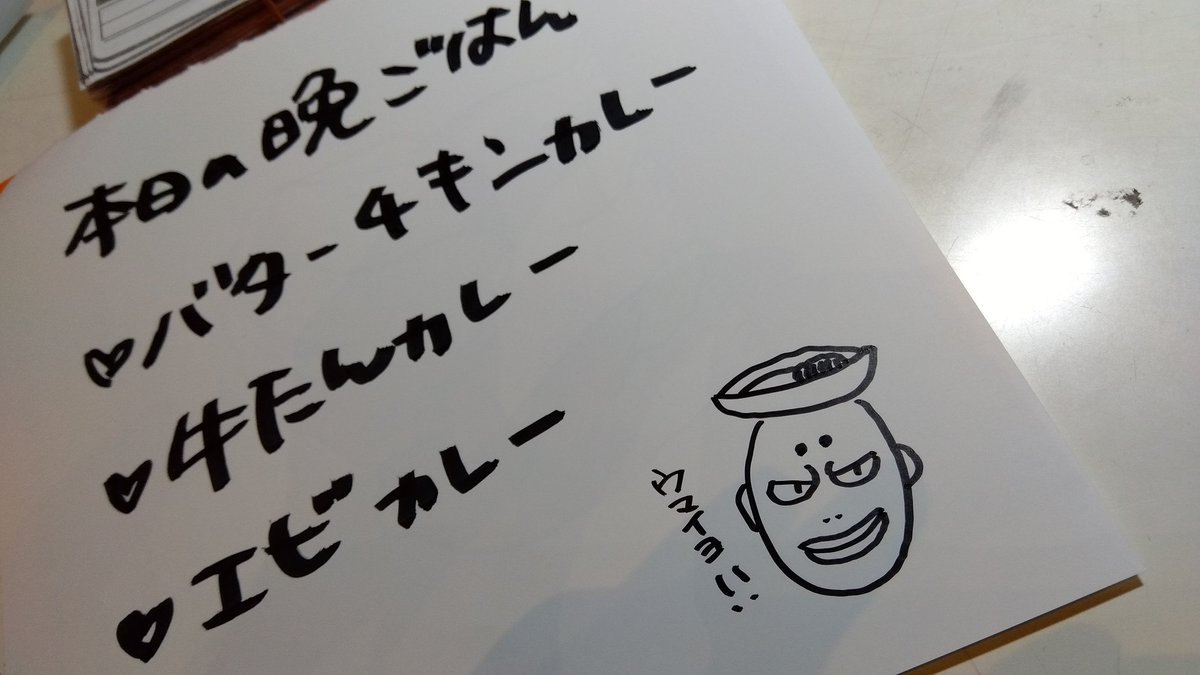 本日の晩ごはん
♡バターチキンカレー
♡牛たんカレー
♡エビカレー
ウマイヨ!!